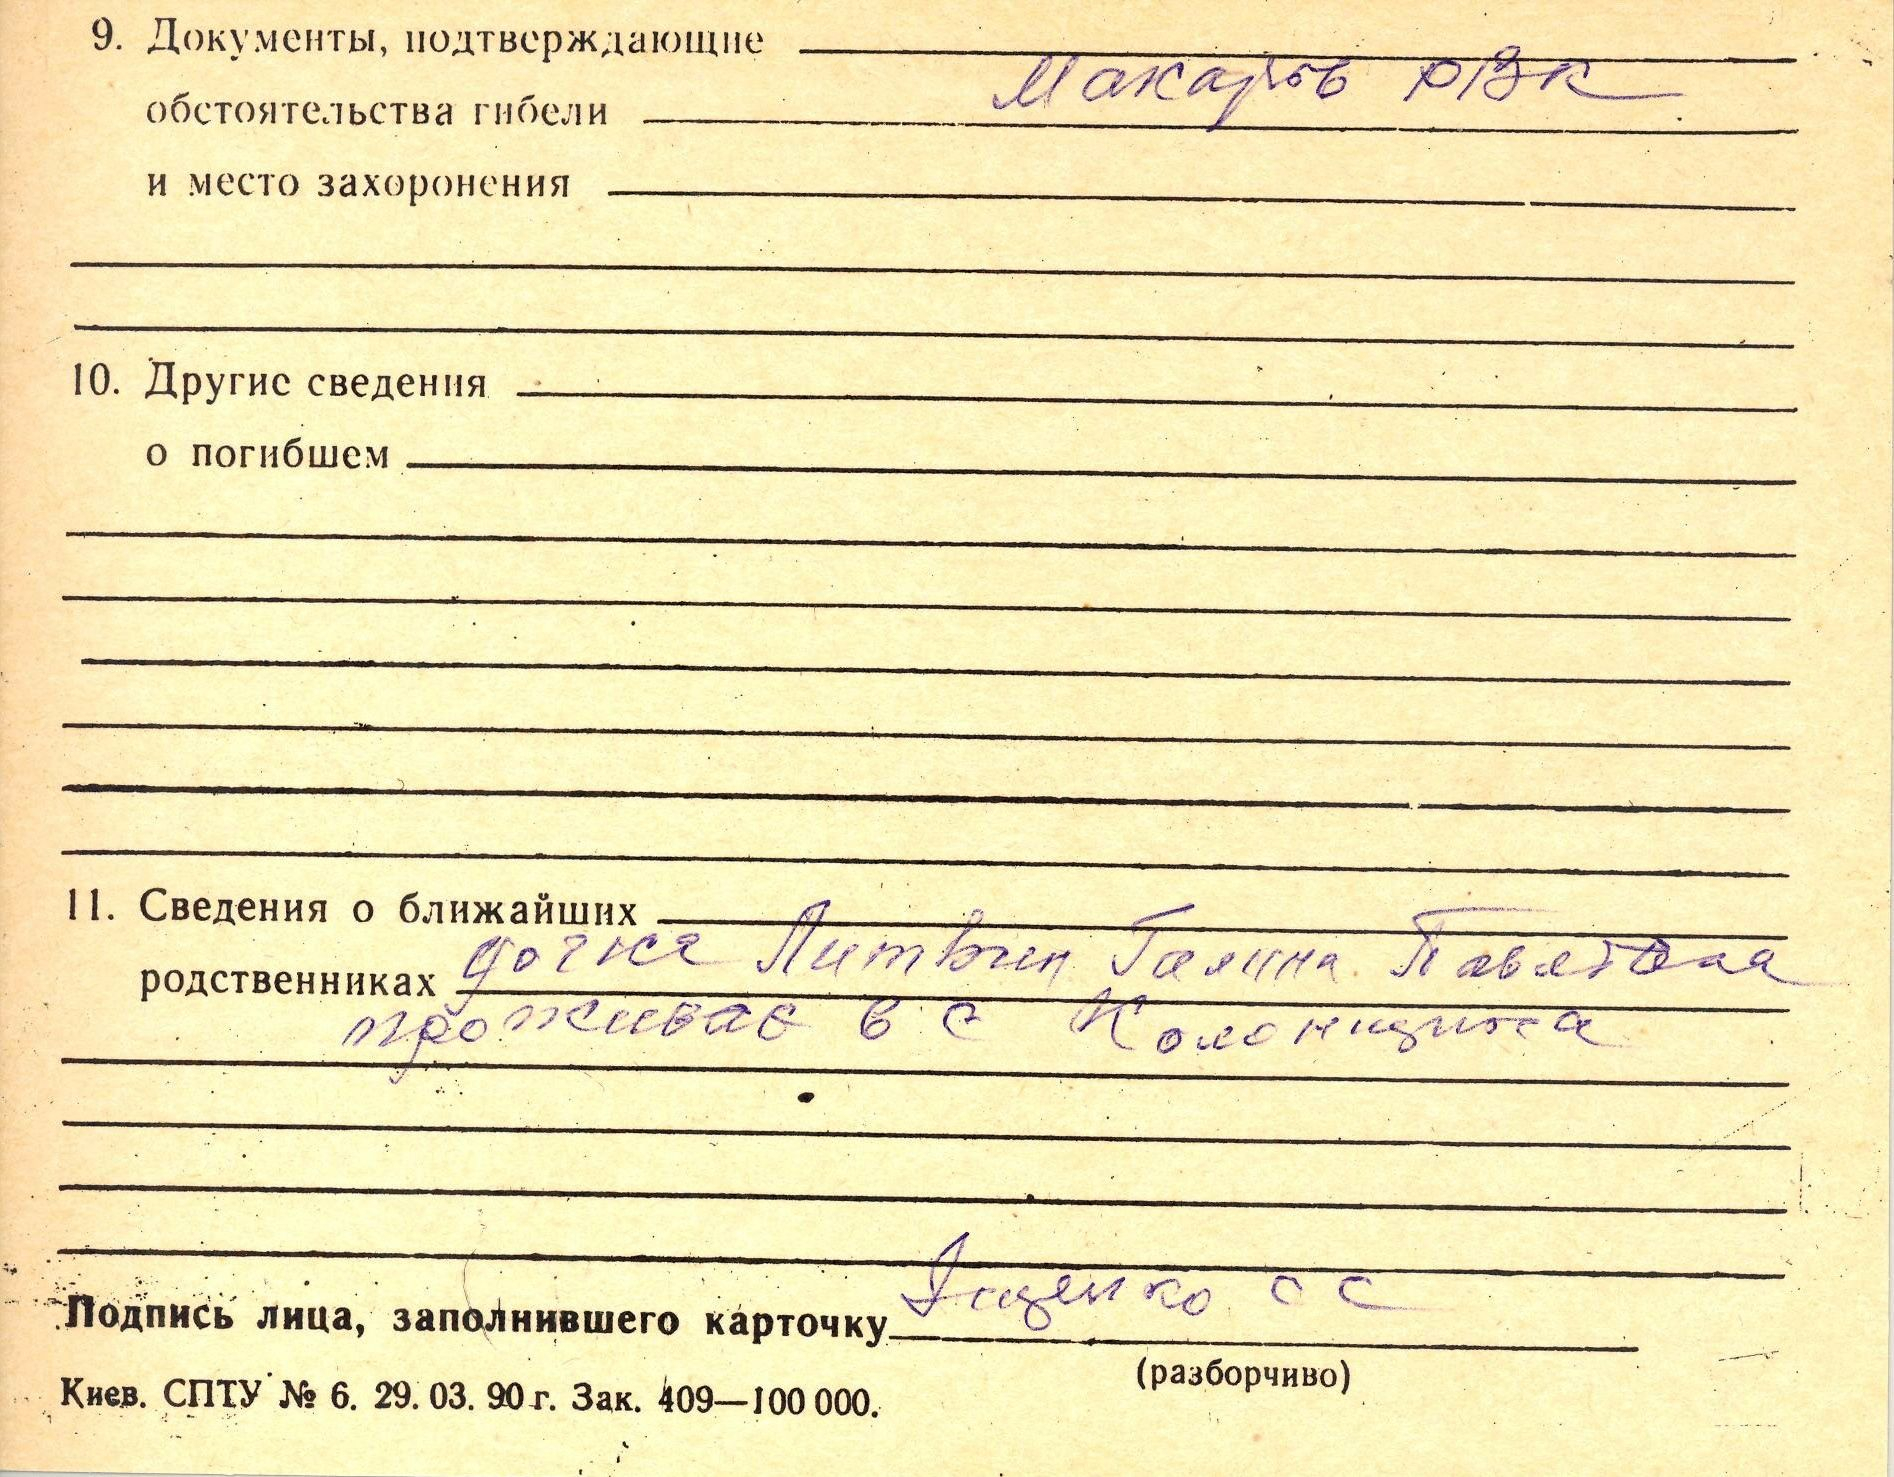 9. Документы, подтверждающие
обстоятельства гибели Макаров РВК
и место захоронения
10. Другие сведения
о погибшем
11. Сведения о ближайших
родственниках дочка Литвин Галина Павловна
проживає в с Колонщина
Подпись лица, заполнившего карточку Яценко С С
(разборчиво)
Киев. СПТУ № 6. 29. 03. 90 г. Зак. 409—100 000.